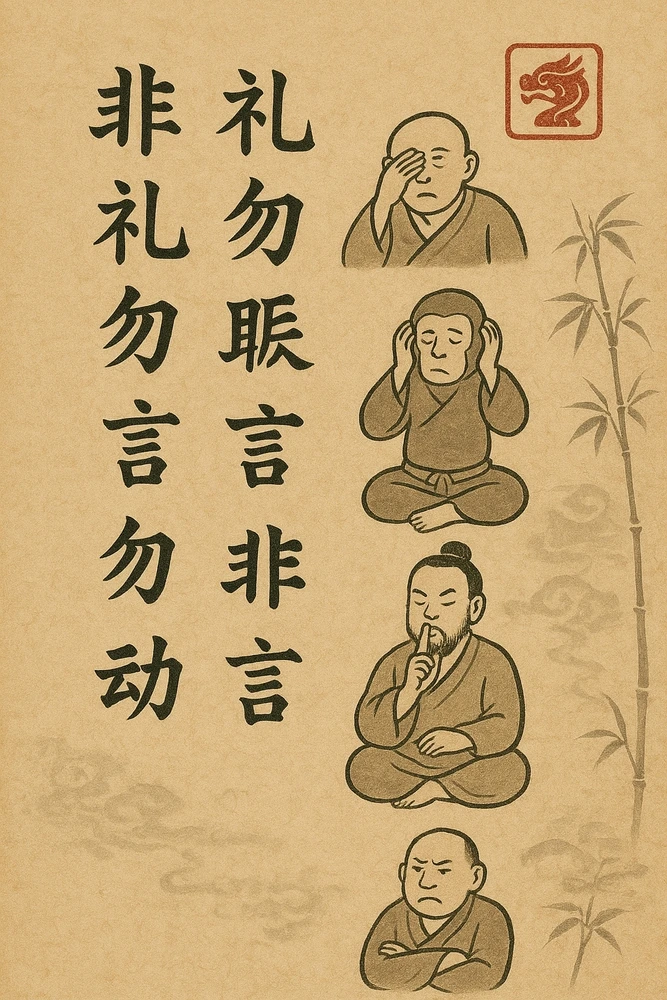 礼勿言非言
非礼勿言勿动